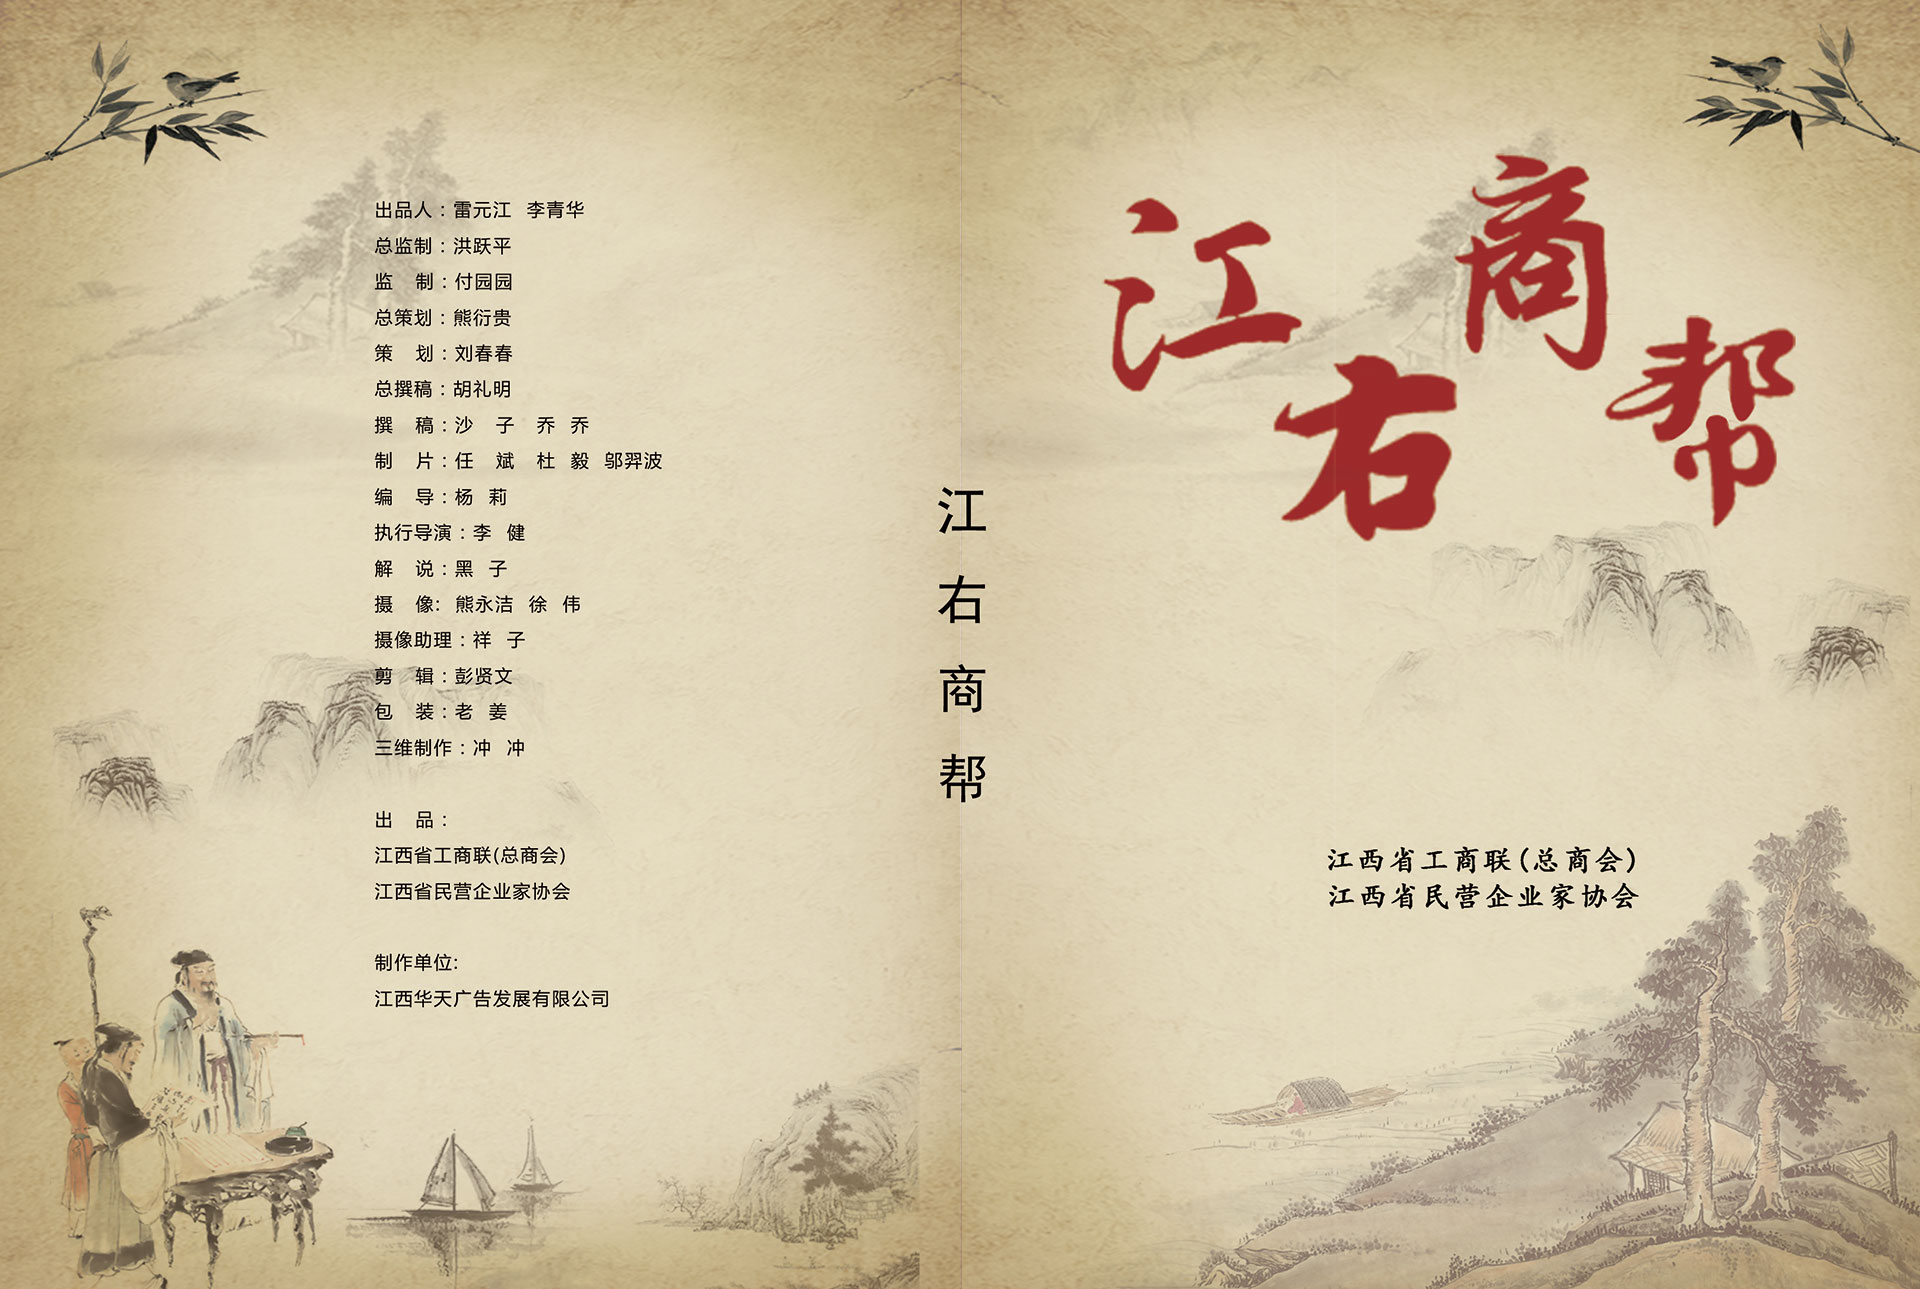 出品人：雷元江 李青华
总监制：洪跃平
监 制：付园园
总策划：熊衍贵
策 划：刘春春
总撰稿：胡礼明
撰 稿：沙 子 乔 乔
制 片：任 斌 杜 毅 邬羿波
编 导：杨 莉
执行导演：李 健
解 说：黑 子
摄 像: 熊永洁 徐 伟
摄像助理：祥 子
剪 辑：彭贤文
包 装：老 姜
三维制作：冲 冲
出 品：
江西省工商联(总商会)
江西省民营企业家协会
制作单位:
江西华天广告发展有限公司
江右商帮
江右商帮
江西省工商联(总商会)
江西省民营企业家协会